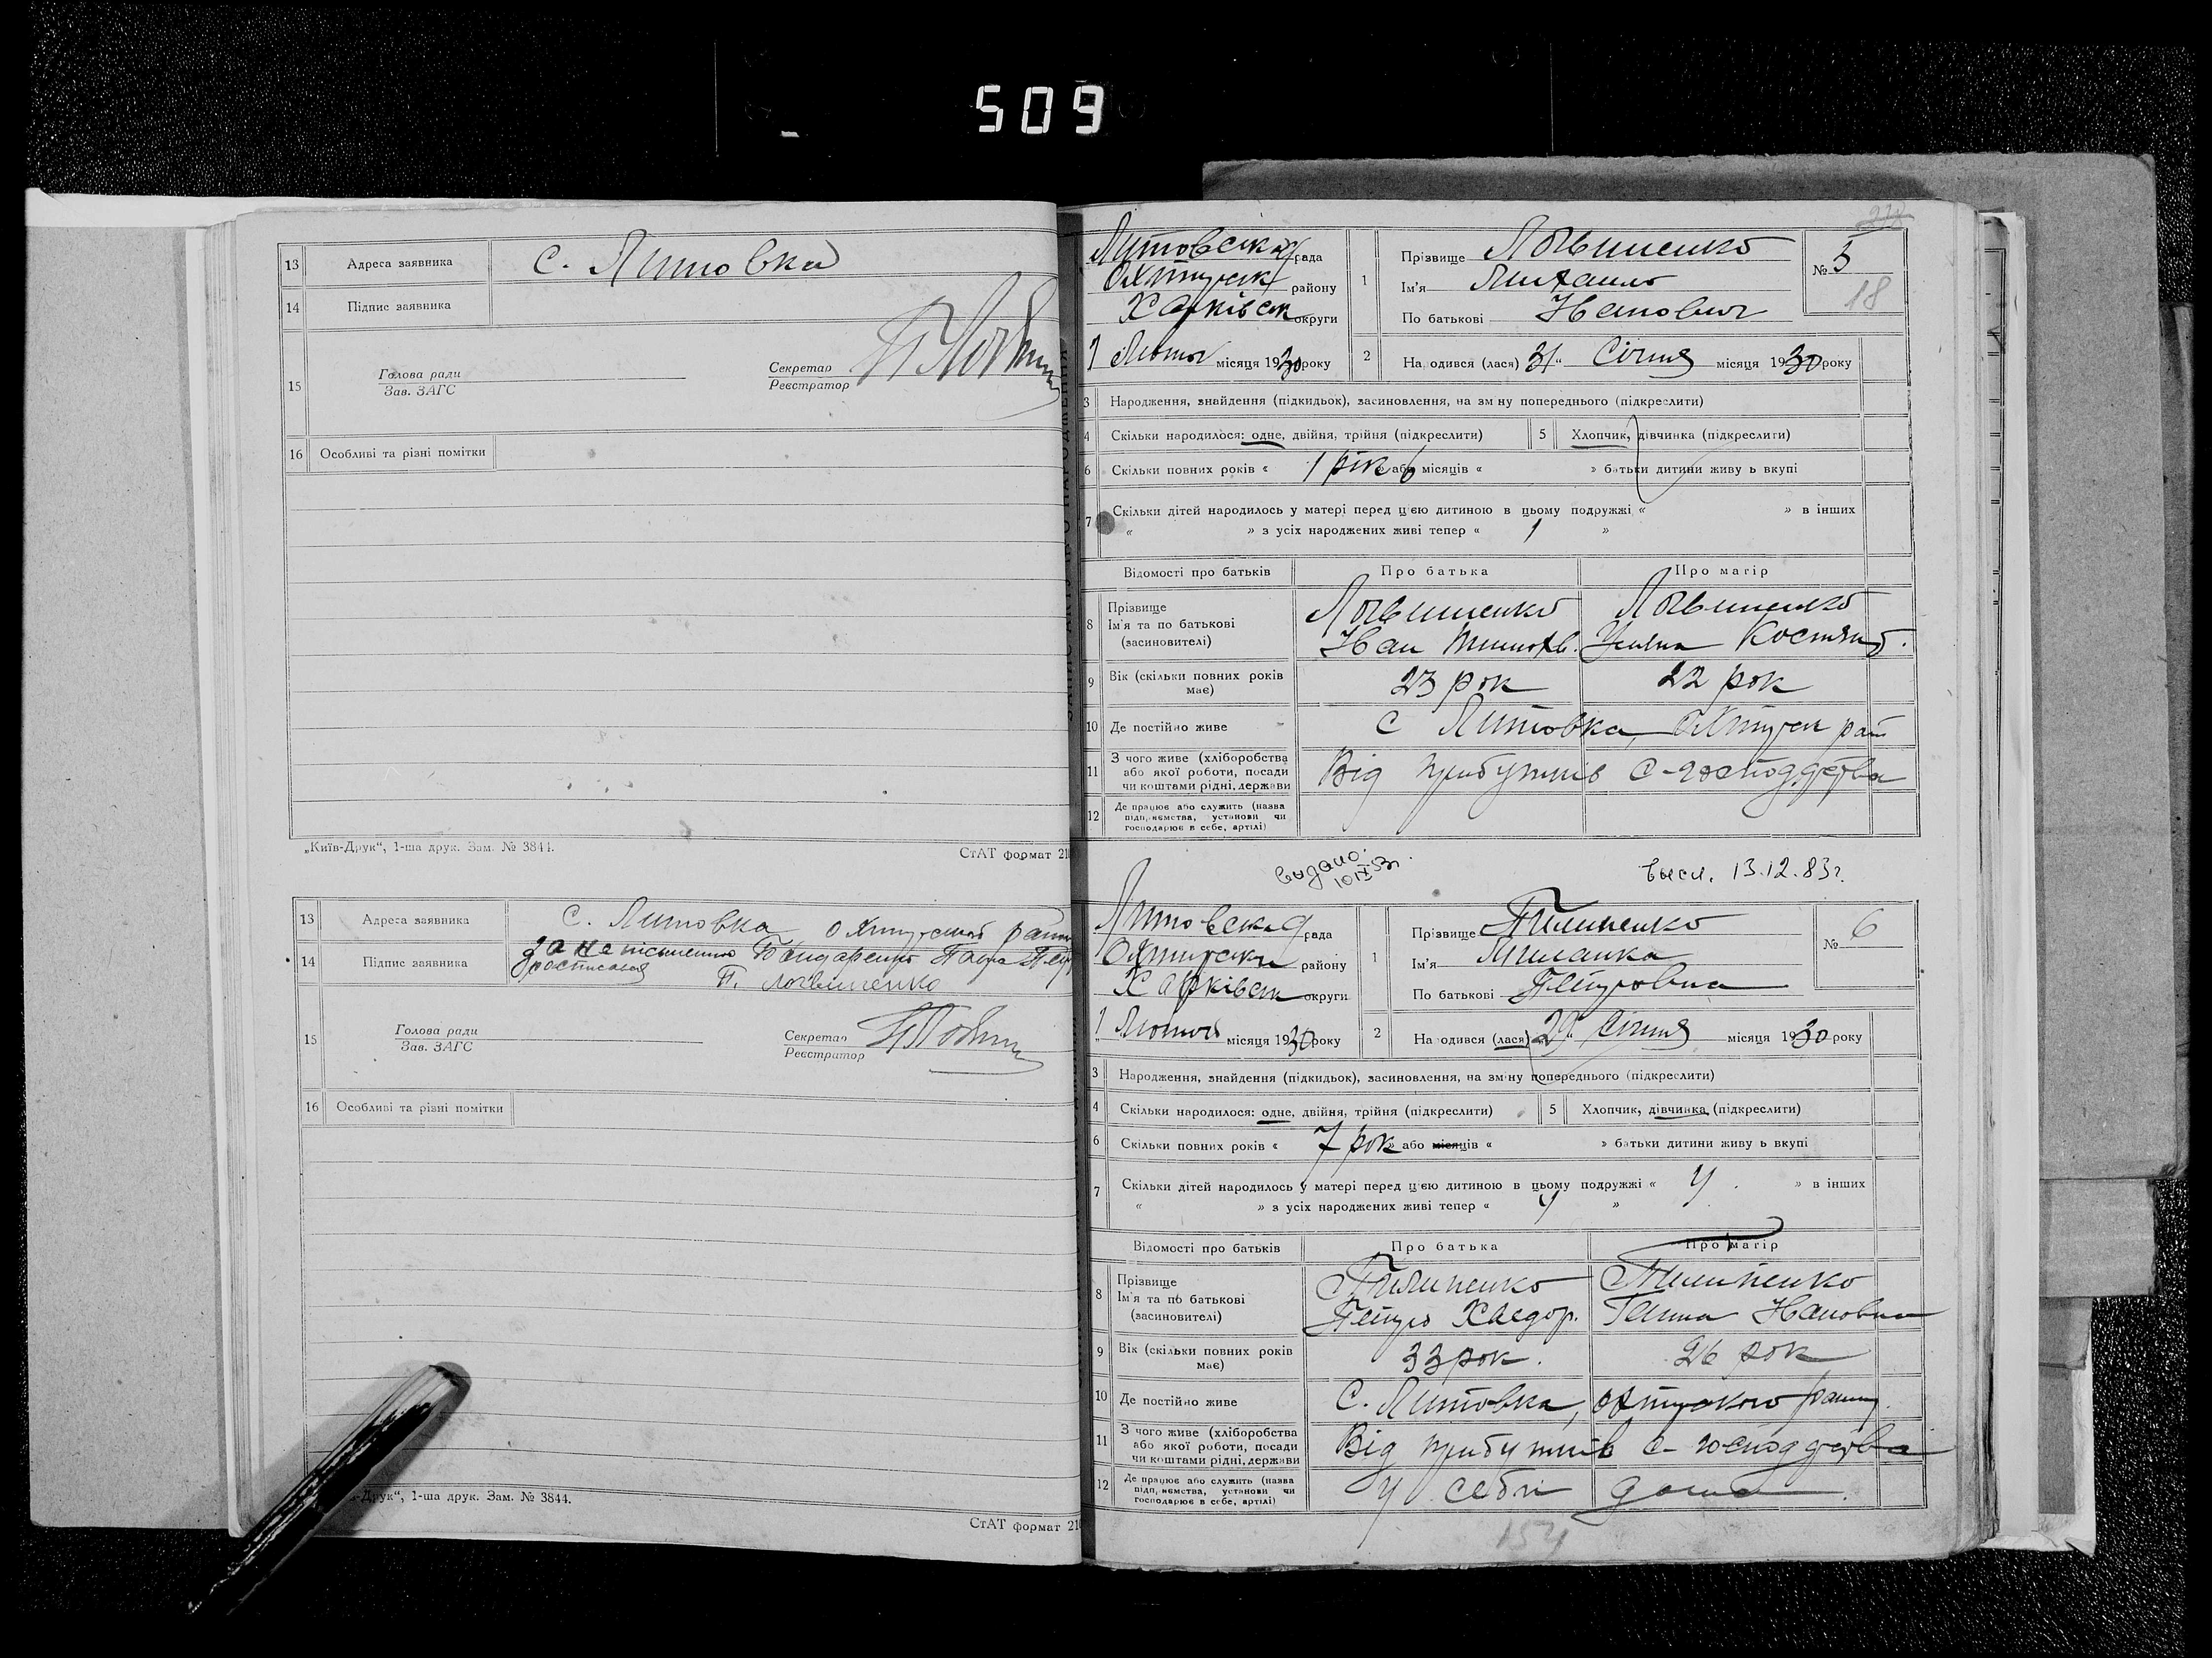 509
13 Адреса заявника с. Литовка
14 Підпис заявника
15 Голова ради
Зав. ЗАГС
Секретар
Реєстратор
16 Особливі та різні помітки
„Київ-Друк“, 1-ша друк. Зам. № 3844.
СтАТ формат 210
13 Адреса заявника С. Литовка
14 Підпис заявника
П. Логвиненко
15 Голова ради
Зав. ЗАГС
Секретар
Реєстратор
16 Особливі та різні помітки
-Друк“, 1-ша друк. Зам. № 3844.
СтАТ формат 210
Литовська рада
Охтирськ району
Харківськ округи
1 місяця 1930 року
1 Прізвище Логвиненко
Ім'я Михаило
По батькові Іванович
№ 5
18
2 На одився (лася) 31 „ Січня місяця 1930 року
3 Народження, знайдення (підкидьок), засиновлення, на зміну попереднього (підкреслити)
4 Скільки народилося: одне, двійня, трійня (підкреслити) 5 Хлопчик, дівчинка (підкреслити)
6 Скільки повних років « 1 рік » або місяців « » батьки дитини живу ь вкупі
7 Скільки дітей народилось у матері перед цією дитиною в цьому подружжі « » в інших
« » з усіх народжених живі тепер « 1 »
Відомості про батьків Про батька Про матір
8 Прізвище Логвиненко Логвиненко
Ім'я та по батькові Іван
(засиновителі)
9 Вік (скільки повних років 23 рок 22 рок
має)
10 Де постійно живе с Литовка, Охтирськ рай
11 З чого живе (хліборобства Від прибутків с-господарства
або якої роботи, посади
чи коштами рідні, держави
12 Де працює або служить (назва
підприємства, установи чи
господарює в себе, артілі)
видано.
10 IX 53г.
высл. 13.12.83г.
Литовська рада
Охтирськ району
Харківськ округи
1 місяця 1930 року
1 Прізвище Пилипенко
Ім'я Миланка
По батькові Петровна
№ 6
2 На одився (лася) „29“ Січня місяця 1930 року
3 Народження, знайдення (підкидьок), засиновлення, на зміну попереднього (підкреслити)
4 Скільки народилося: одне, двійня, трійня (підкреслити) 5 Хлопчик, дівчинка (підкреслити)
6 Скільки повних років « 7 рок » або місяців « » батьки дитини живу ь вкупі
7 Скільки дітей народилось у матері перед цією дитиною в цьому подружжі « 4 » в інших
« » з усіх народжених живі тепер « 4 »
Відомості про батьків Про батька Про матір
8 Прізвище Пилипенко Пилипенко
Ім'я та по батькові Петро Хведор. Ганна Івановна
(засиновителі)
9 Вік (скільки повних років 33 рок. 26 рок
має)
10 Де постійно живе С. Литовка, Охтирського району
11 З чого живе (хліборобства Від прибутків с-господарства
або якої роботи, посади
чи коштами рідні, держави
12 Де працює або служить (назва У себи дома
підприємства, установи чи
господарює в себе, артілі)
154